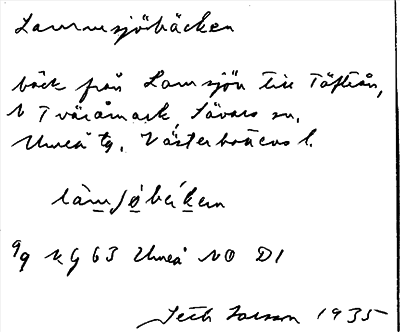 Lammsjöbäcken
bäck från Lamsjön till Täfteån,
N Tväråmark, Sävars sn,
Umeå tg, Västerbottens l.
làmʃøbækɛn
kg 63 Umeå NO D1
Seth Larsson 1935